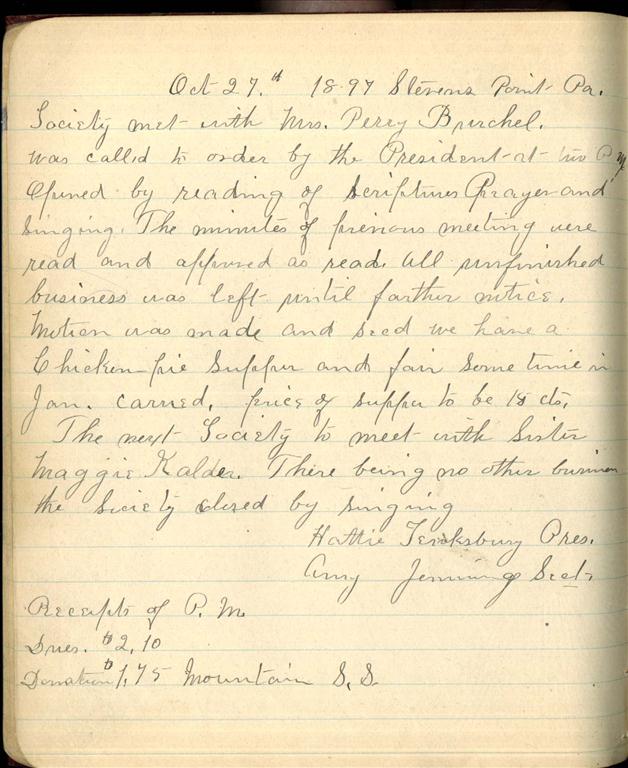 Oct 27.th 1897 Stevens Point Pa.
Society met with Mrs. Perry Burchel.
was called to order by the President at two P.M.
Opened by reading of scriptures Prayer and
singing. The minutes of previous meeting were
read and approved as read. All unfinished
business was left until farther notice.
Motion was made and secd we have a
Chicken pie supper and fair some time in
Jan. carried. price of supper to be 15 cts.
The next Society to meet with Sister
Maggie Kalder. There being no other business
the Society closed by singing
Hattie Tewksbury Pres.
Amy Jennings Sect.
Receipts of P.M.
Dues. $2,10
Donation $1,75 Mountain S.S.